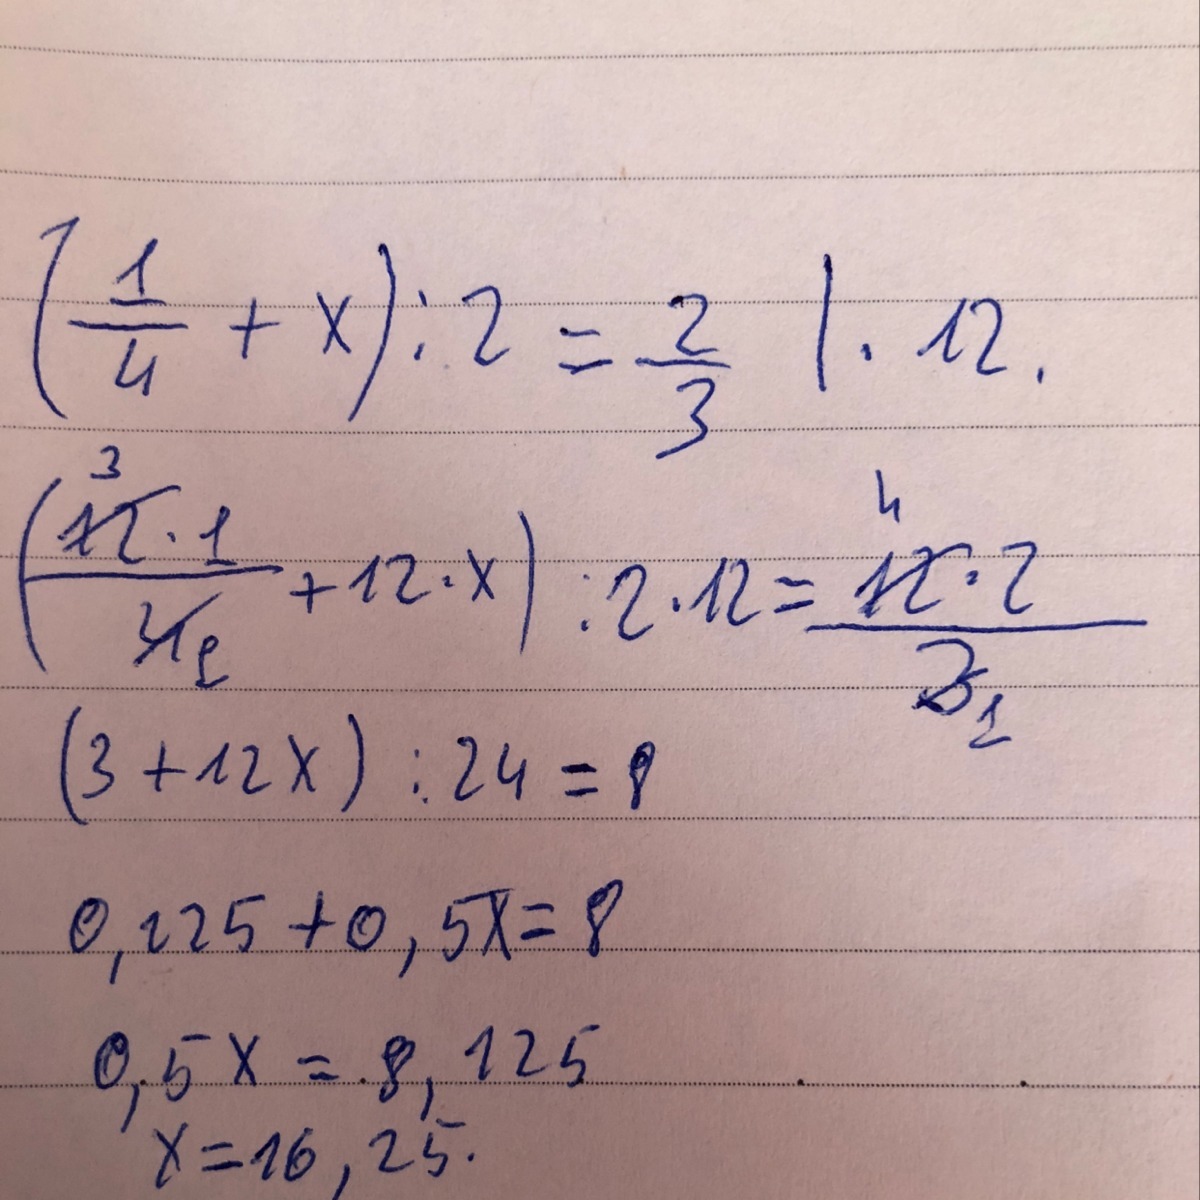 (1/4 + x) : 2 = 2/3 | · 12.
(12 · 1/4 + 12 · x) : 2 · 12 = 12 · 2/3
3 1 4 1
(3 + 12x) : 24 = 8
0,125 + 0,5x = 8
0,5x = 8,125
x = 16,25.